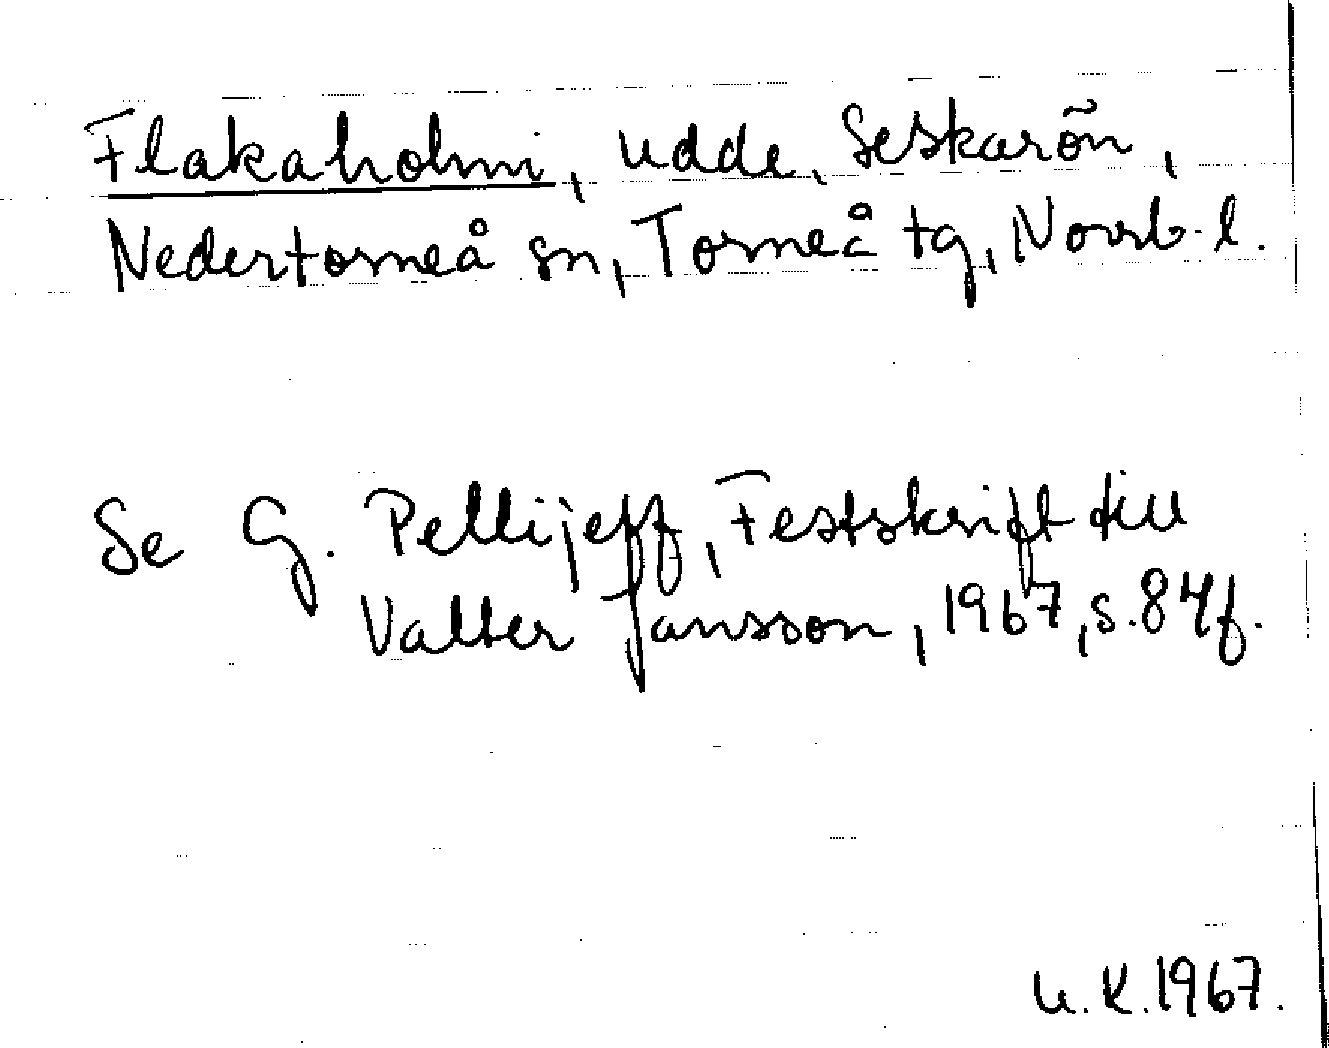 Flakaholmi, udde, Seskarön,
Nedertorneå sn, Torneå tg, Norrb. l.
Se G. Pellijeff, Festskrift till
Valter Jansson, 1967, s. 84f.
U.K. 1967.